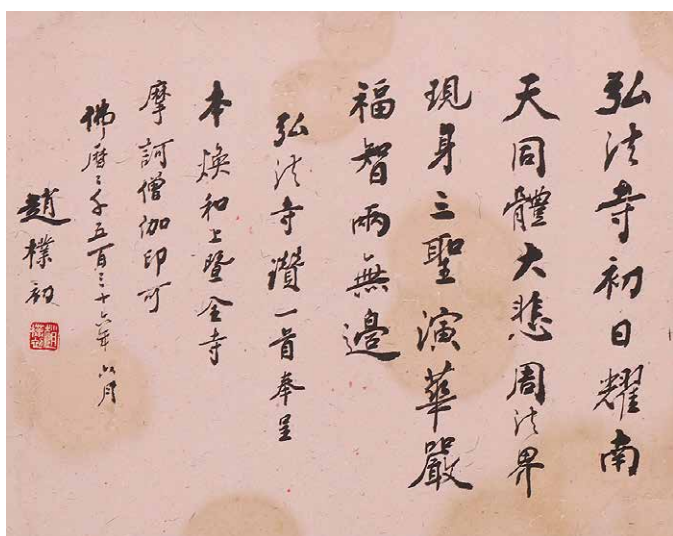 弘法寺初日耀南
天同體大悲周法界
現身三聖演華嚴
福智兩無邊
弘法寺讚一首奉呈
本煥和上暨全寺
摩訶僧伽印可
佛曆二千五百三十六年六月
趙樸初
趙樸初